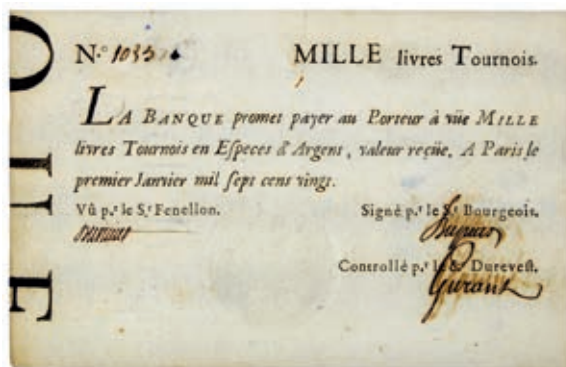 N.º 1035 MILLE livres Tournois.
LA BANQUE promet payer au Porteur à vüe MILLE
livres Tournois en Especes d'Argent, valeur reçüe. A Paris le
premier Janvier mil sept cens vingt.
Vû p.r le S.r Fenellon. Signé p.r le S.r Bourgeois.
Controllé p.r le S.r Durevest.